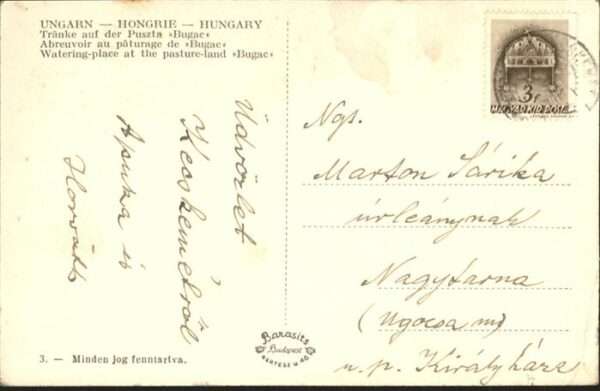 UNGARN — HONGRIE — HUNGARY
Tränke auf der Puszta »Bugac«
Abreuvoir au pâturage de »Bugac«
Watering-place at the pasture-land »Bugac«
Üdvözlet
Kecskemétről
Apuka és
Horváth
3f
MAGYAR KIR. POSTA
Ngs.
Marton Sárika
úrleánynak
Nagytarna
(Ugocsa m)
u. p. Királyháza
Barasits
Budapest
3. — Minden jog fenntartva.